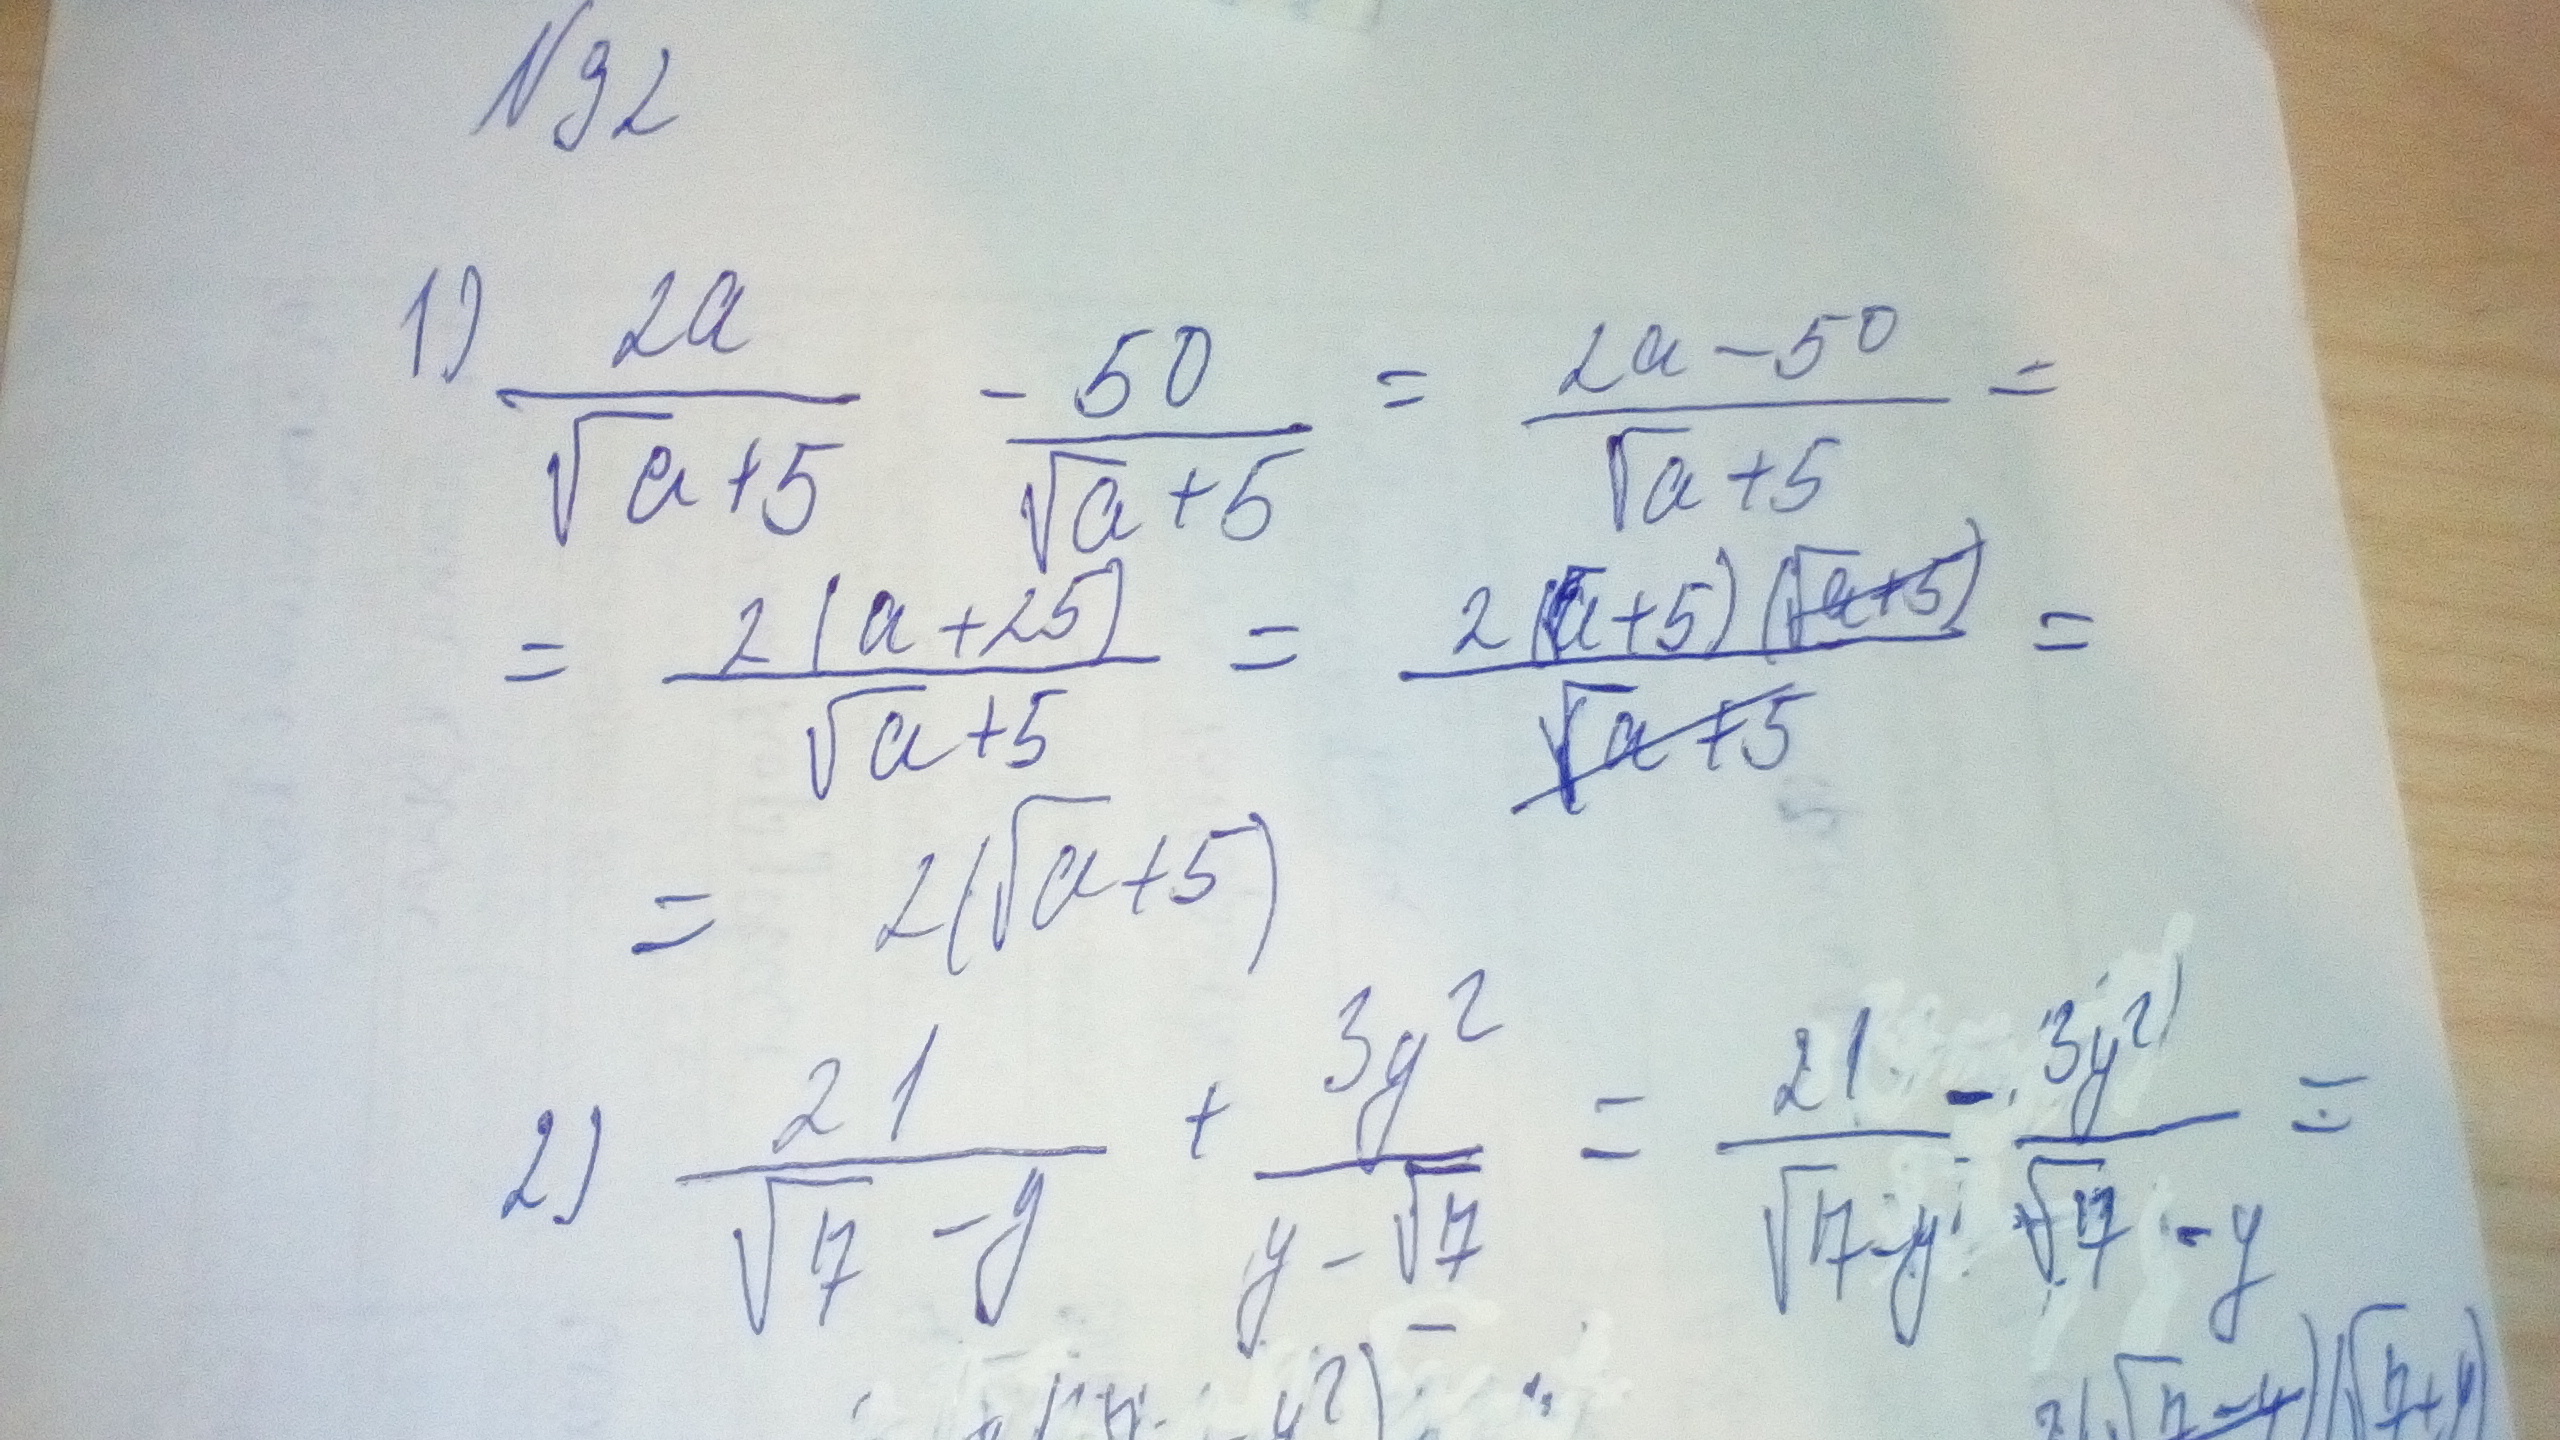 №92
1) 2a/(√a+5) - 50/(√a+5) = (2a-50)/(√a+5) =
= 2(a+25)/(√a+5) = 2(√a+5)(√a+5)/(√a+5) =
= 2(√a+5)
2) 21/(√7-y) + 3y²/(y-√7) = 21/(√7-y) - 3y²/(√7-y) =